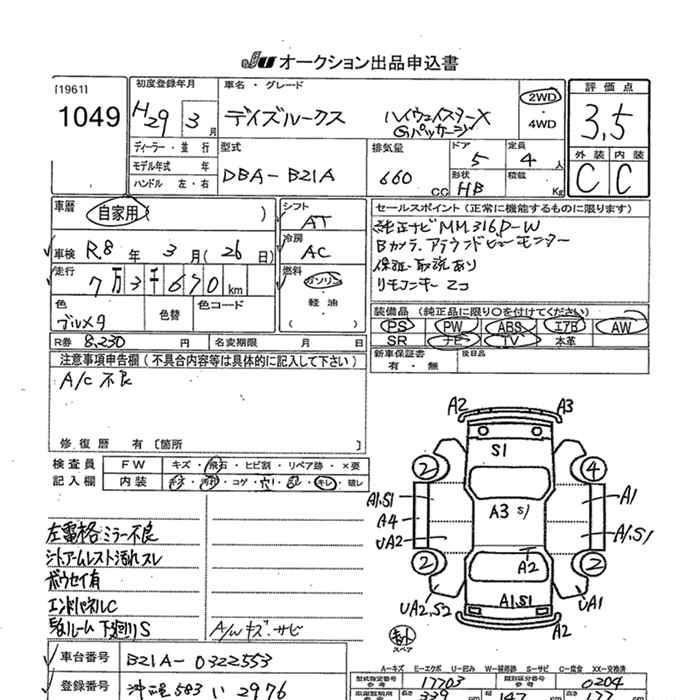 JU オークション出品申込書
[1961]
1049
初度登録年月
H29 3 月
車名・グレード
デイズルークス ハイウェイスターX
Gパッケージ
2WD
・
4WD
評価点
3.5
外装 内装
C C
ディーラー・並行
モデル年式 年
ハンドル 左・右
型式
DBA-B21A
排気量
660 cc
ドア 5
定員 4 人
形状 HB
積載 Kg
車歴 自家用 ( )
シフト AT
車検 R.8 年 3 月 ( 26 日)
冷房 AC
走行 7万3千670 km
燃料 ガソリン
・
軽油
( )
色 ブルメタ
色替
色コード
R券 8,230 円
名変期限 月 日
セールスポイント (正常に機能するものに限ります)
純正ナビMM316D-W
Bカメラ、アラウンドビューモニター
保証・取説あり
リモコンキー 2コ
装備品 (純正品に限り〇を付けてください)
PS PW ABS エアB AW
SR ナビ TV 本革
新車保証書
有・無
後日品
注意事項申告欄 (不具合内容等は具体的に記入して下さい)
A/C不良
修復歴 有 [箇所 ]
検査員
記入欄
FW キズ・飛石・ヒビ割・リペア跡・×要
内装 キズ・汚れ・コゲ・穴・キレ・破レ
左電格ミラー不良
シートアームレスト汚れスレ
ボウセイ有
エンドパネルC
ルーム下廻りS
A/Wキズ・サビ
A2 A3
S1
2 4
A1.S1 A1
A4 A3 S1
UA2 A1.S1
2 A2 2
UA2.S2 A1.S1 UA1
A2
スペア
A-キズ E-エクボ U-凹み W-補修跡 S-サビ C-腐食 XX-交換済
車台番号 B21A-0322553
登録番号 沖縄 583 い 2976
型式指定番号 17703
類別区分番号 0204
長さ 339 cm 幅 147 cm 高さ 177 cm